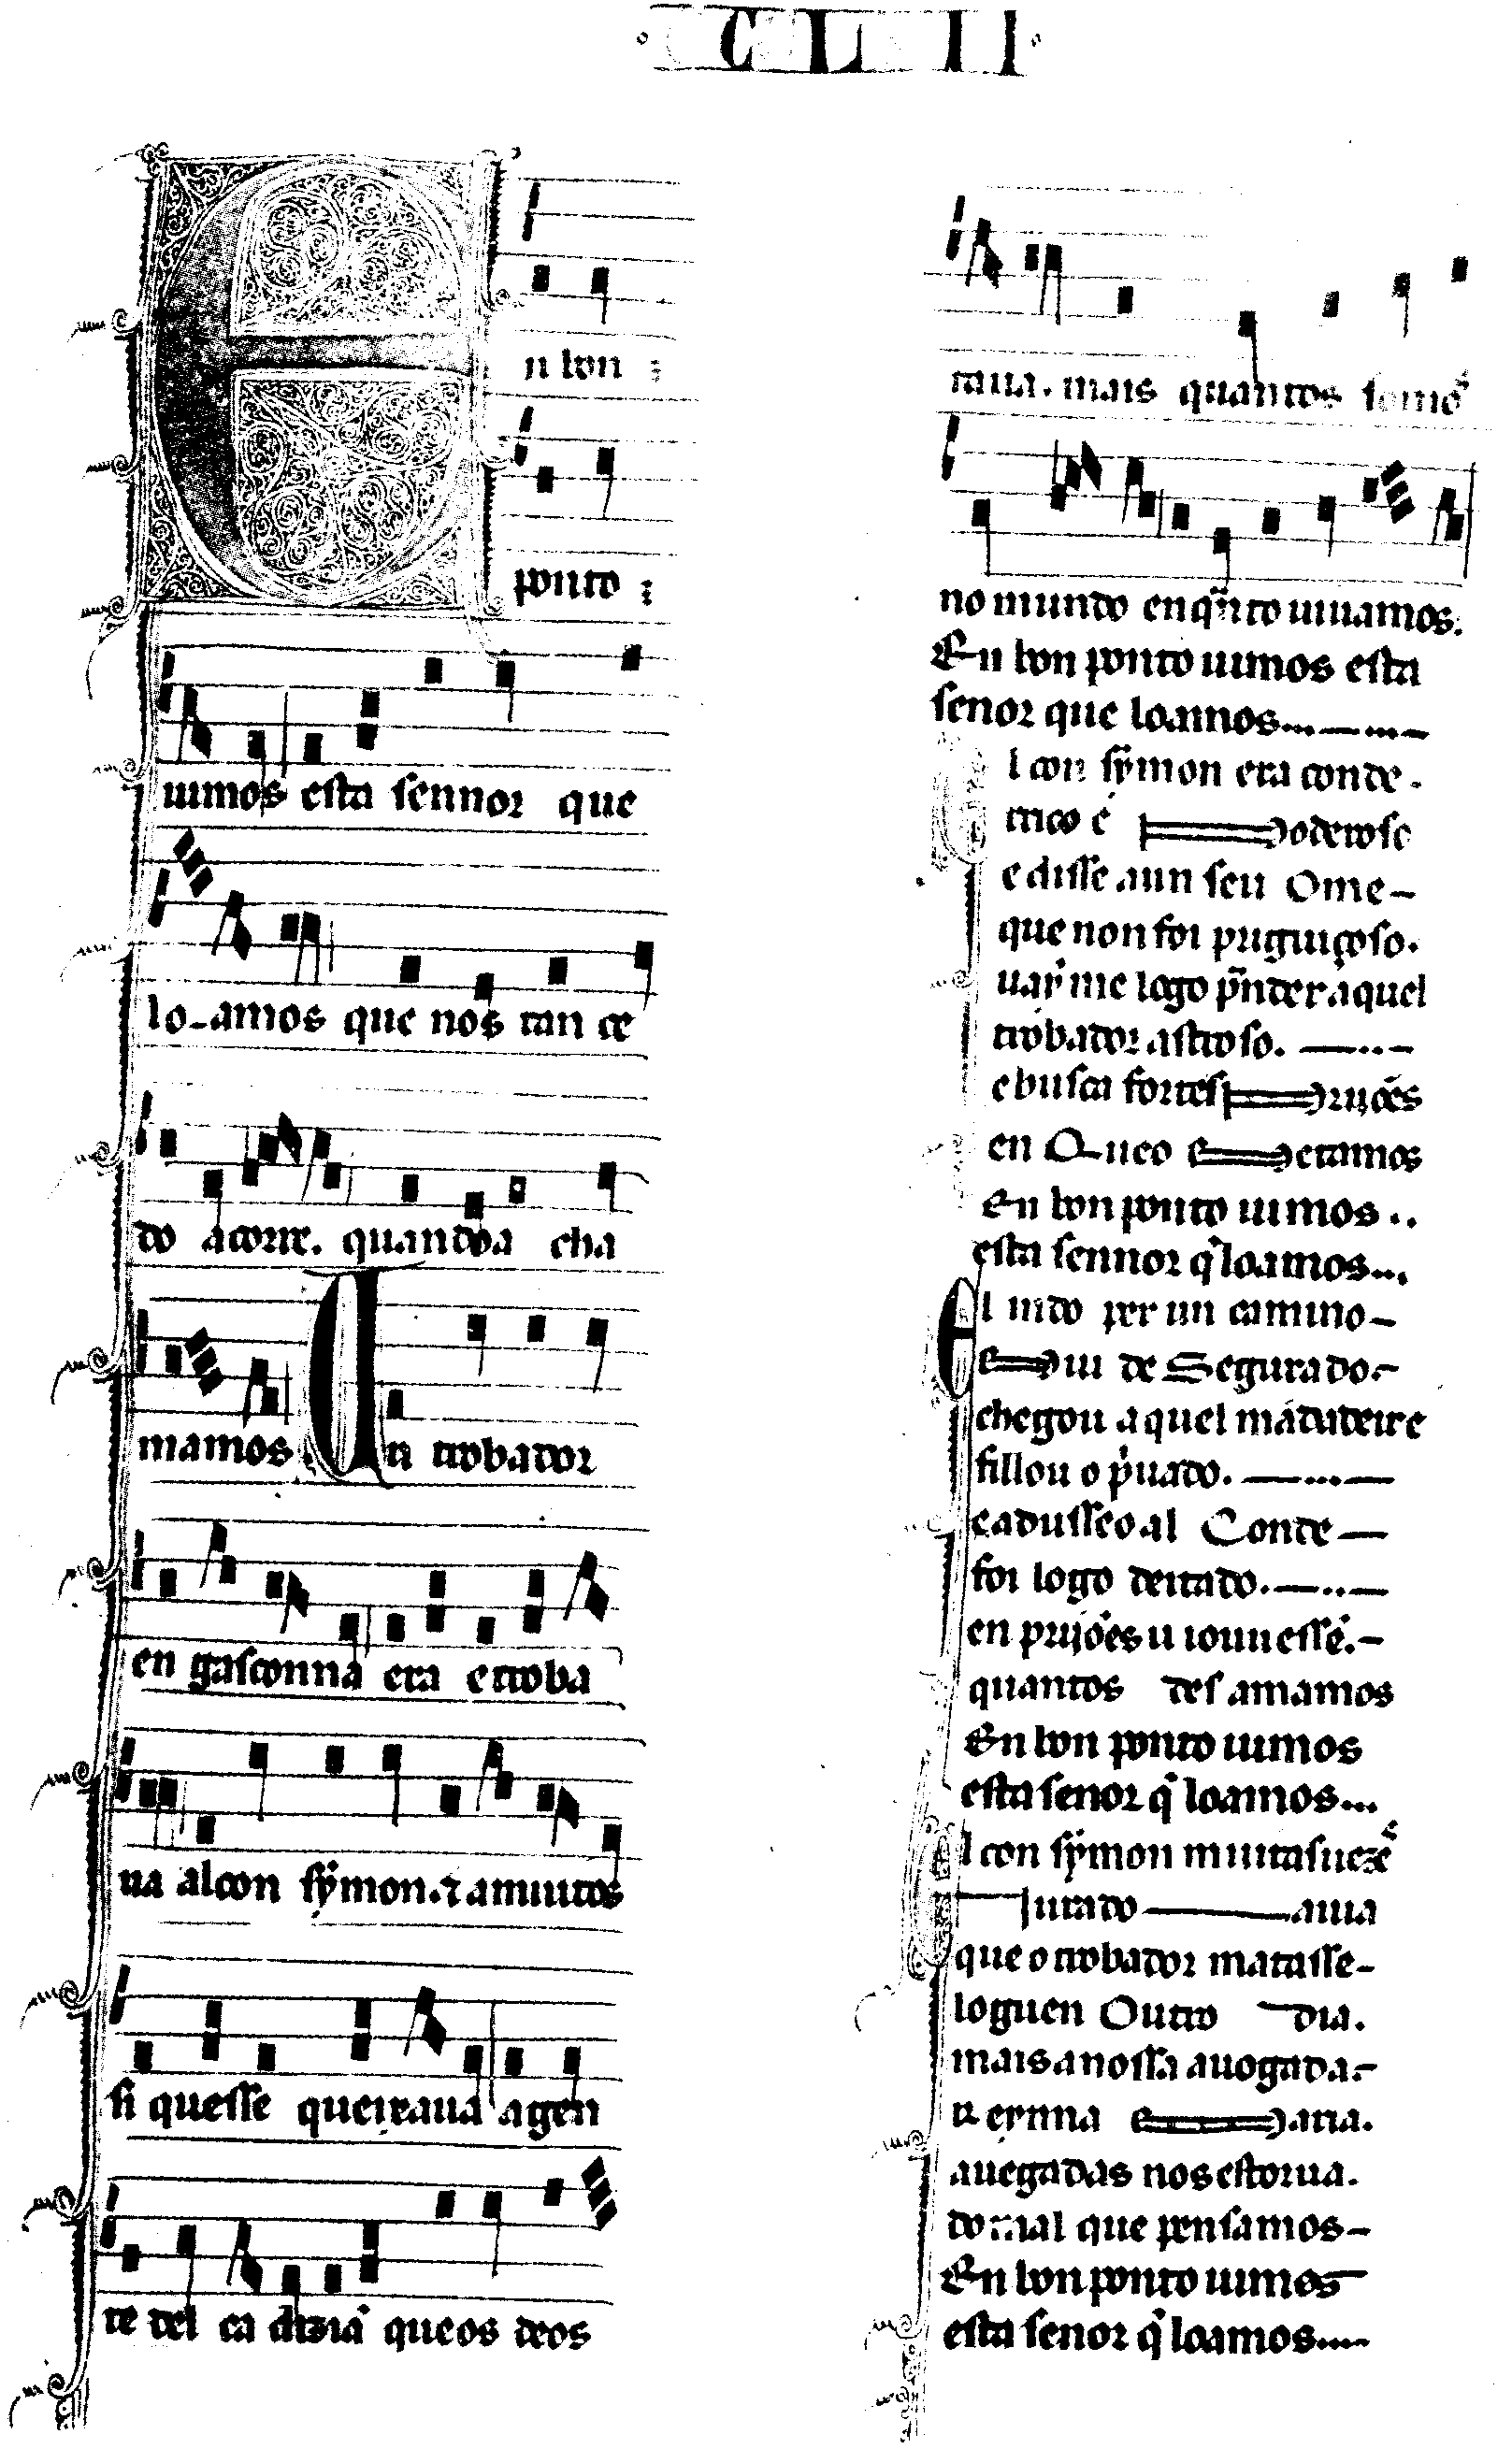 CLII
En bon :
ponto :
uimos esta sennor que
lo-amos que nos tan ce
do acorre. quandoa cha
mamos Un trobador
en gasconna era e troba
ua al con sỹmon. ⁊ a muitos
si quesse queixaua a gen
te del ca dizia queos deos
taua. mais quantos somos
no mundo en q̃nto uiuamos.
En bon ponto uimos esta
senor que loamos...—...—
l con sỹmon era conde.
rico e poderoso
e disse a un seu Ome-
que non foi priguiçoso.
uaỹ me logo p̃nder aquel
trobador astroso. —..—
e busca fortes prijões
en Que o metamos
En bon ponto uimos..
esta sennor q̃ loamos...
El indo per un camino-
ui de Segurado.-
chegou aquel mãdadeire
fillou o p̃uado. —...—
e adusseo al Conde —
foi logo deitado.—..—
en prijões u iouuesse.-
quantos des amamos
En bon ponto uimos
esta senor q̃ loamos...
El con sỹmon muitas uezes
jurado — auia
que o trobador matasse-
loguen Outro dia.
mais a nossa auogada.-
Reynna Maria.
auegadas nos estorua.
do mal que pensamos-
En bon ponto uimos
esta senor q̃ loamos....